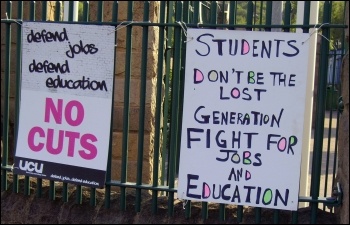 defend jobs
defend
education
NO
CUTS
UCU
defend jobs, defend education
STUDENTS
DON'T BE THE
LOST
GENERATION
FIGHT FOR
JOBS
AND
EDUCATION